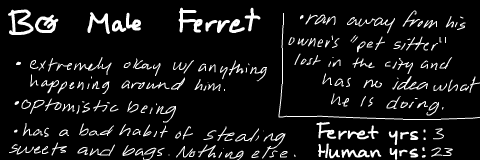 Bo Male Ferret
• extremely okay w/ anything
happening around him.
• optomistic being
• has a bad habit of stealing
sweets and bags. Nothing else.
• ran away from his
owner's "pet sitter"
lost in the city and
has no idea what
he is doing.
Ferret yrs: 3
Human yrs: 23